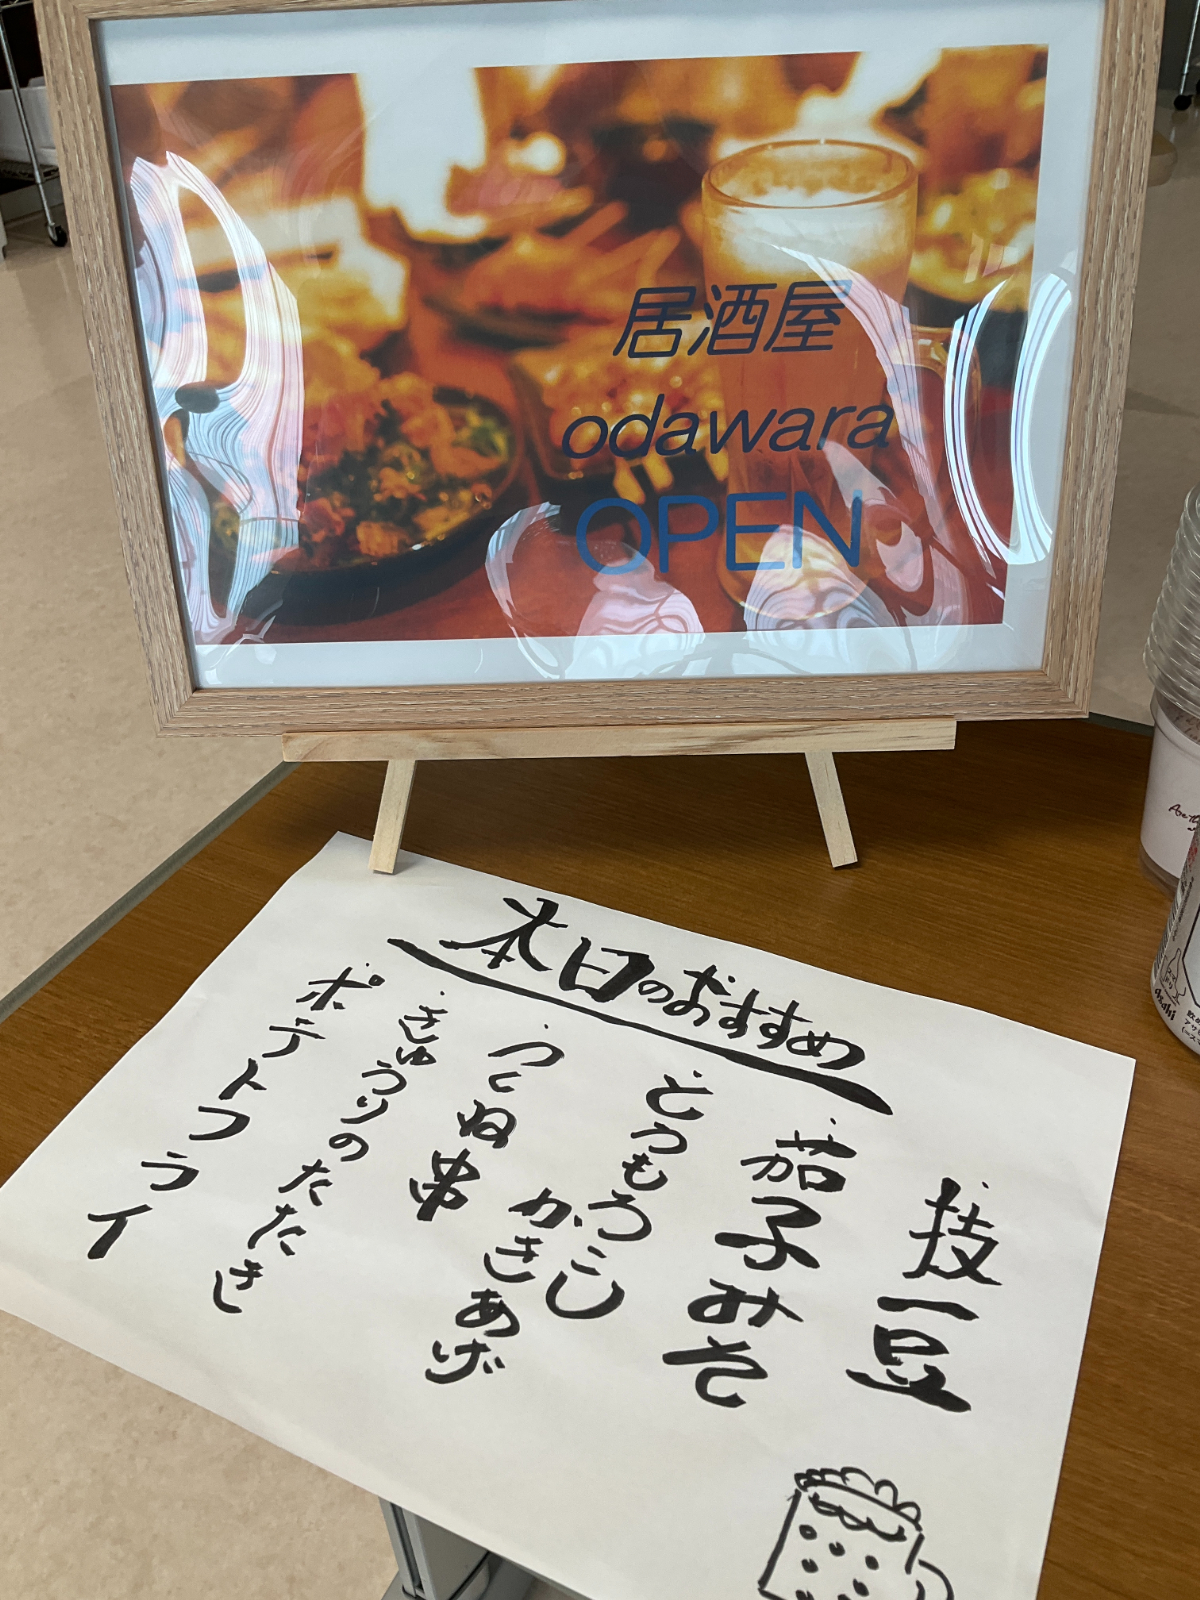 居酒屋
odawara
OPEN
本日のおすすめ
・技豆
・茄子みそ
・とうもろこし
かきあげ
・つくね串
・きゅうりのたたき
・ポテトフライ
Asahi